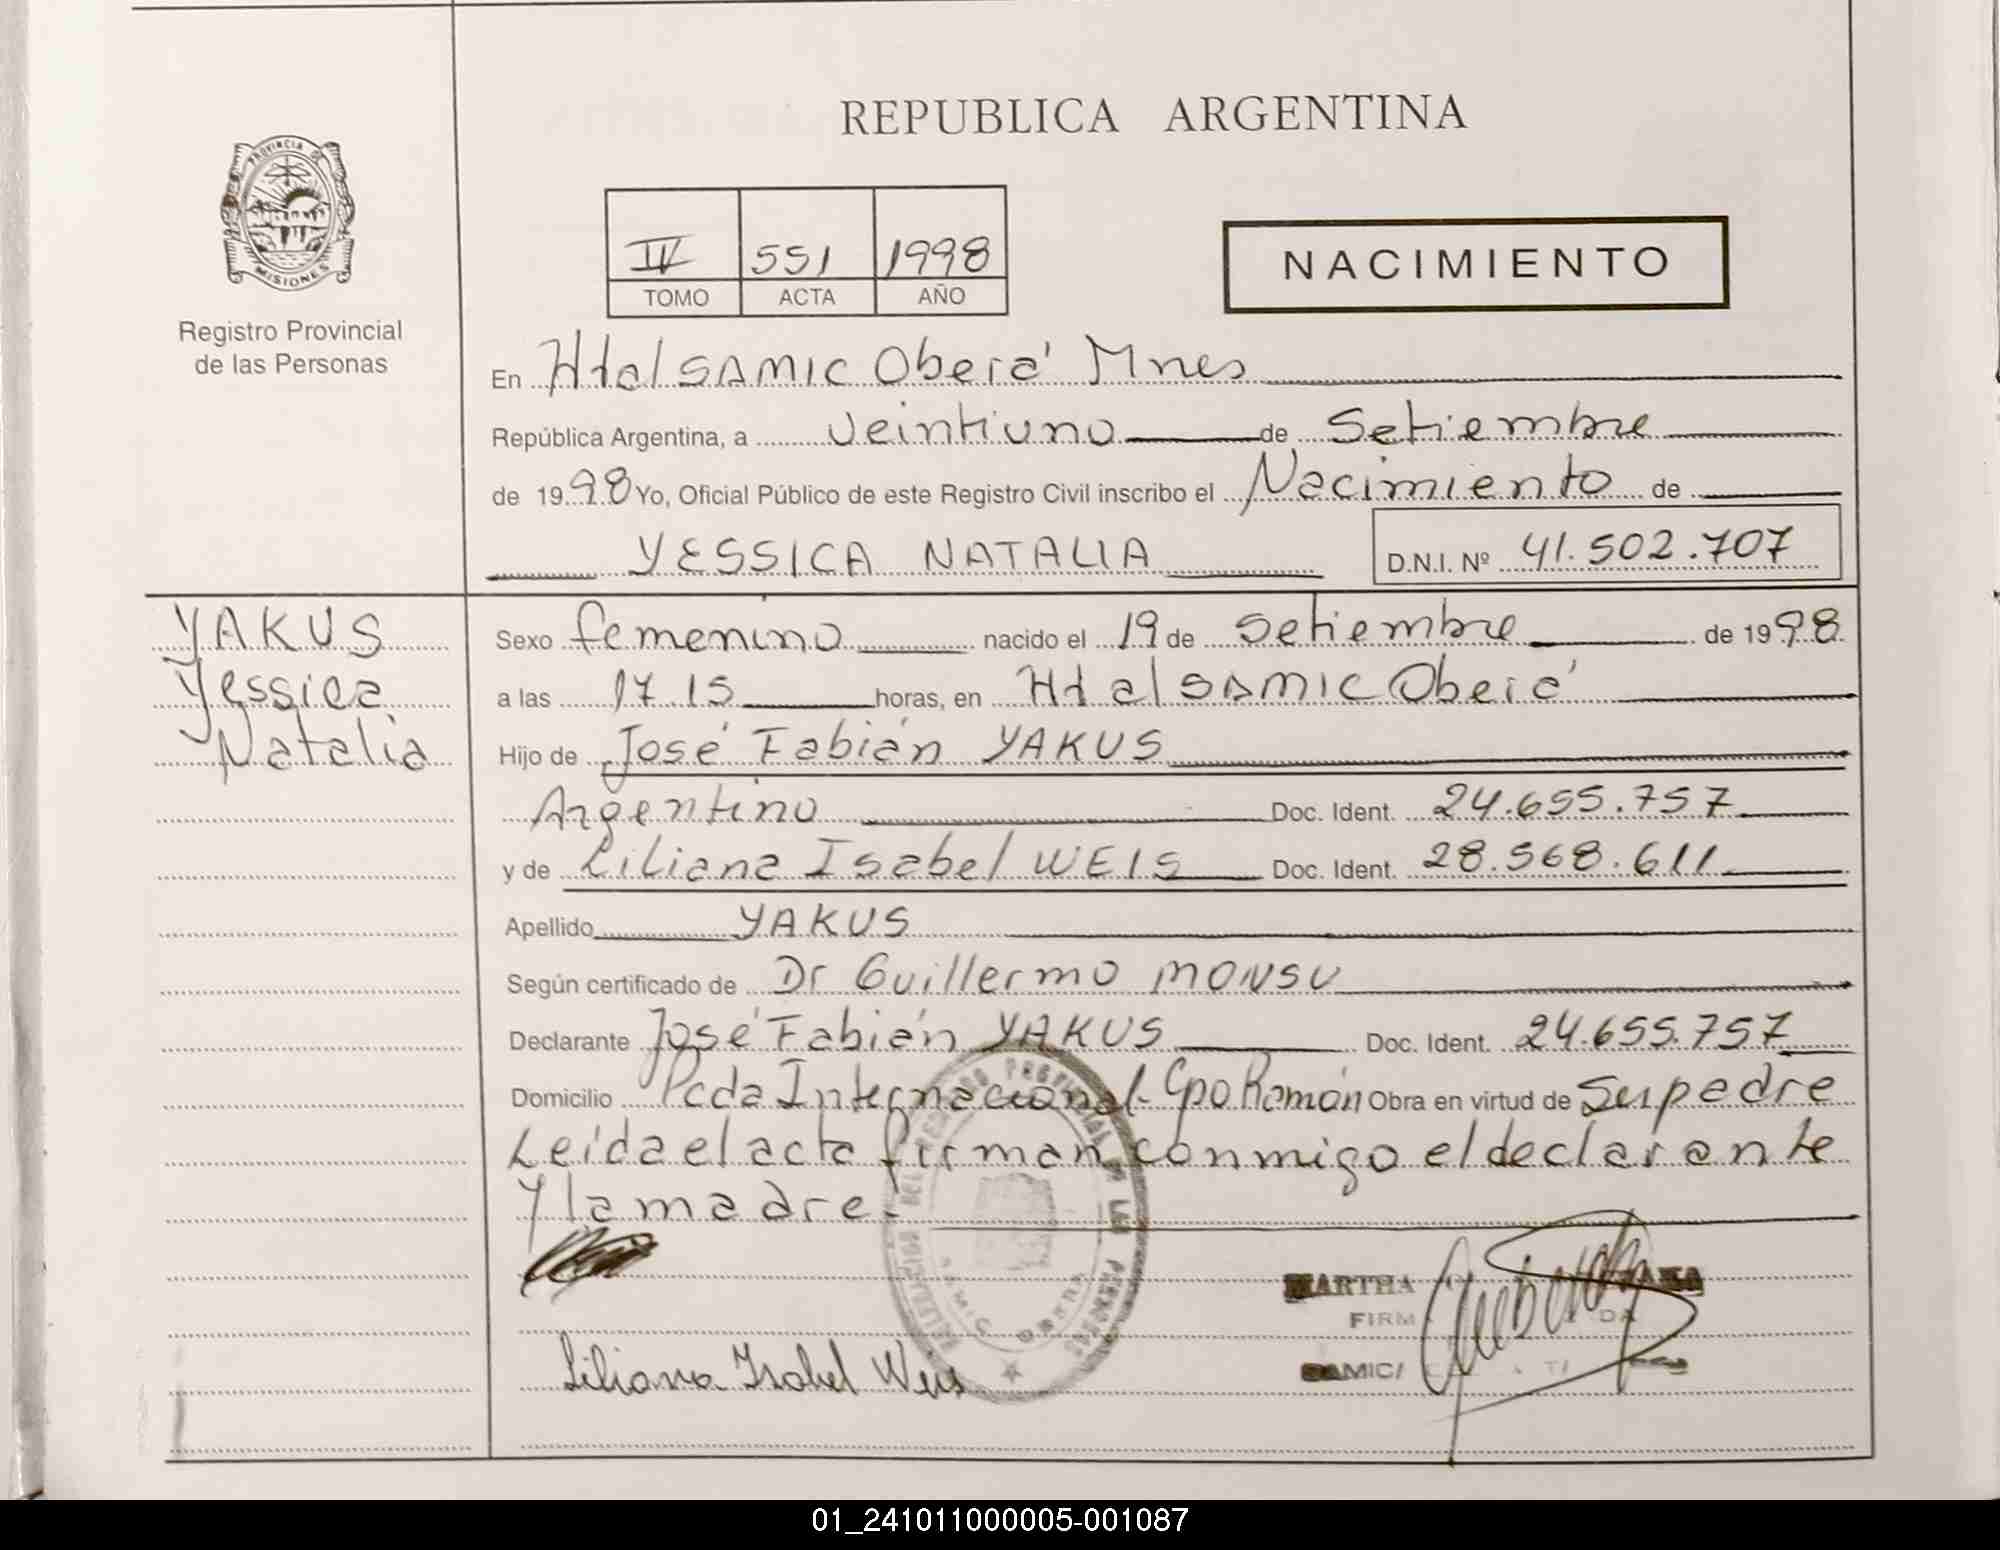 REPUBLICA ARGENTINA
PROVINCIA DE
MISIONES
Registro Provincial
de las Personas
IV 551 1998
TOMO ACTA AÑO
NACIMIENTO
En Htal SAMIC Oberá Mnes
República Argentina, a veintiuno de Setiembre
de 1998 Yo, Oficial Público de este Registro Civil inscribo el Nacimiento de
YESSICA NATALIA D.N.I. Nº 41.502.707
YAKUS
Yessica
Natalia
Sexo femenino nacido el 19 de Setiembre de 1998
a las 17 15 horas, en Htal SAMIC Oberá
Hijo de José Fabián YAKUS
Argentino Doc. Ident. 24.655.757
y de Liliana Isabel WEIS Doc. Ident. 28.568.611
Apellido YAKUS
Según certificado de Dr Guillermo MONSU
Declarante José Fabián YAKUS Doc. Ident. 24.655.757
Domicilio Pcda Internacional-Cpo Ramón Obra en virtud de Su padre
Leída el acta firman conmigo el declarante
y la madre.
DELEGACION DEL REGISTRO PROVINCIAL DE LAS PERSONAS
SAMIC OBERA
MARTHA
FIRM DA
SAMIC/
Liliana Isabel Weis
01_241011000005-001087